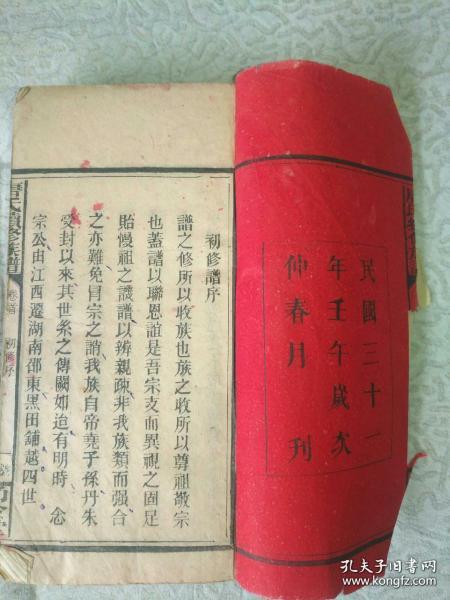 民國三十一
年壬午歲次
仲春月刊
初修譜序
譜之修所以收族也族之收所以尊祖敬宗
也蓋譜以聯恩誼是吾宗支而異視之固足
貽慢祖之譏譜以辨親疎非我族類而强合
之亦難免冒宗之誚我族自帝堯子孫丹朱
受封以來其世系之傳闕如迨有明時 念
宗公由江西遷湖南邵東黑田鋪越四世
氏續修族譜
卷首
初修序
孔夫子旧书网
www.kongfz.com